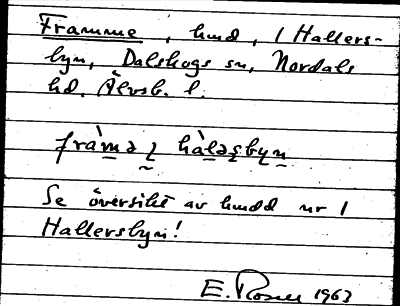 Framme, hmd, 1 Hallers-
byn, Dalskogs sn, Nordals
hd. Älvsb. l.
fràmə ɩ hàləsbyn
Se översikt av hmdd nr 1
Hallersbyn!
E. Rosén 1963